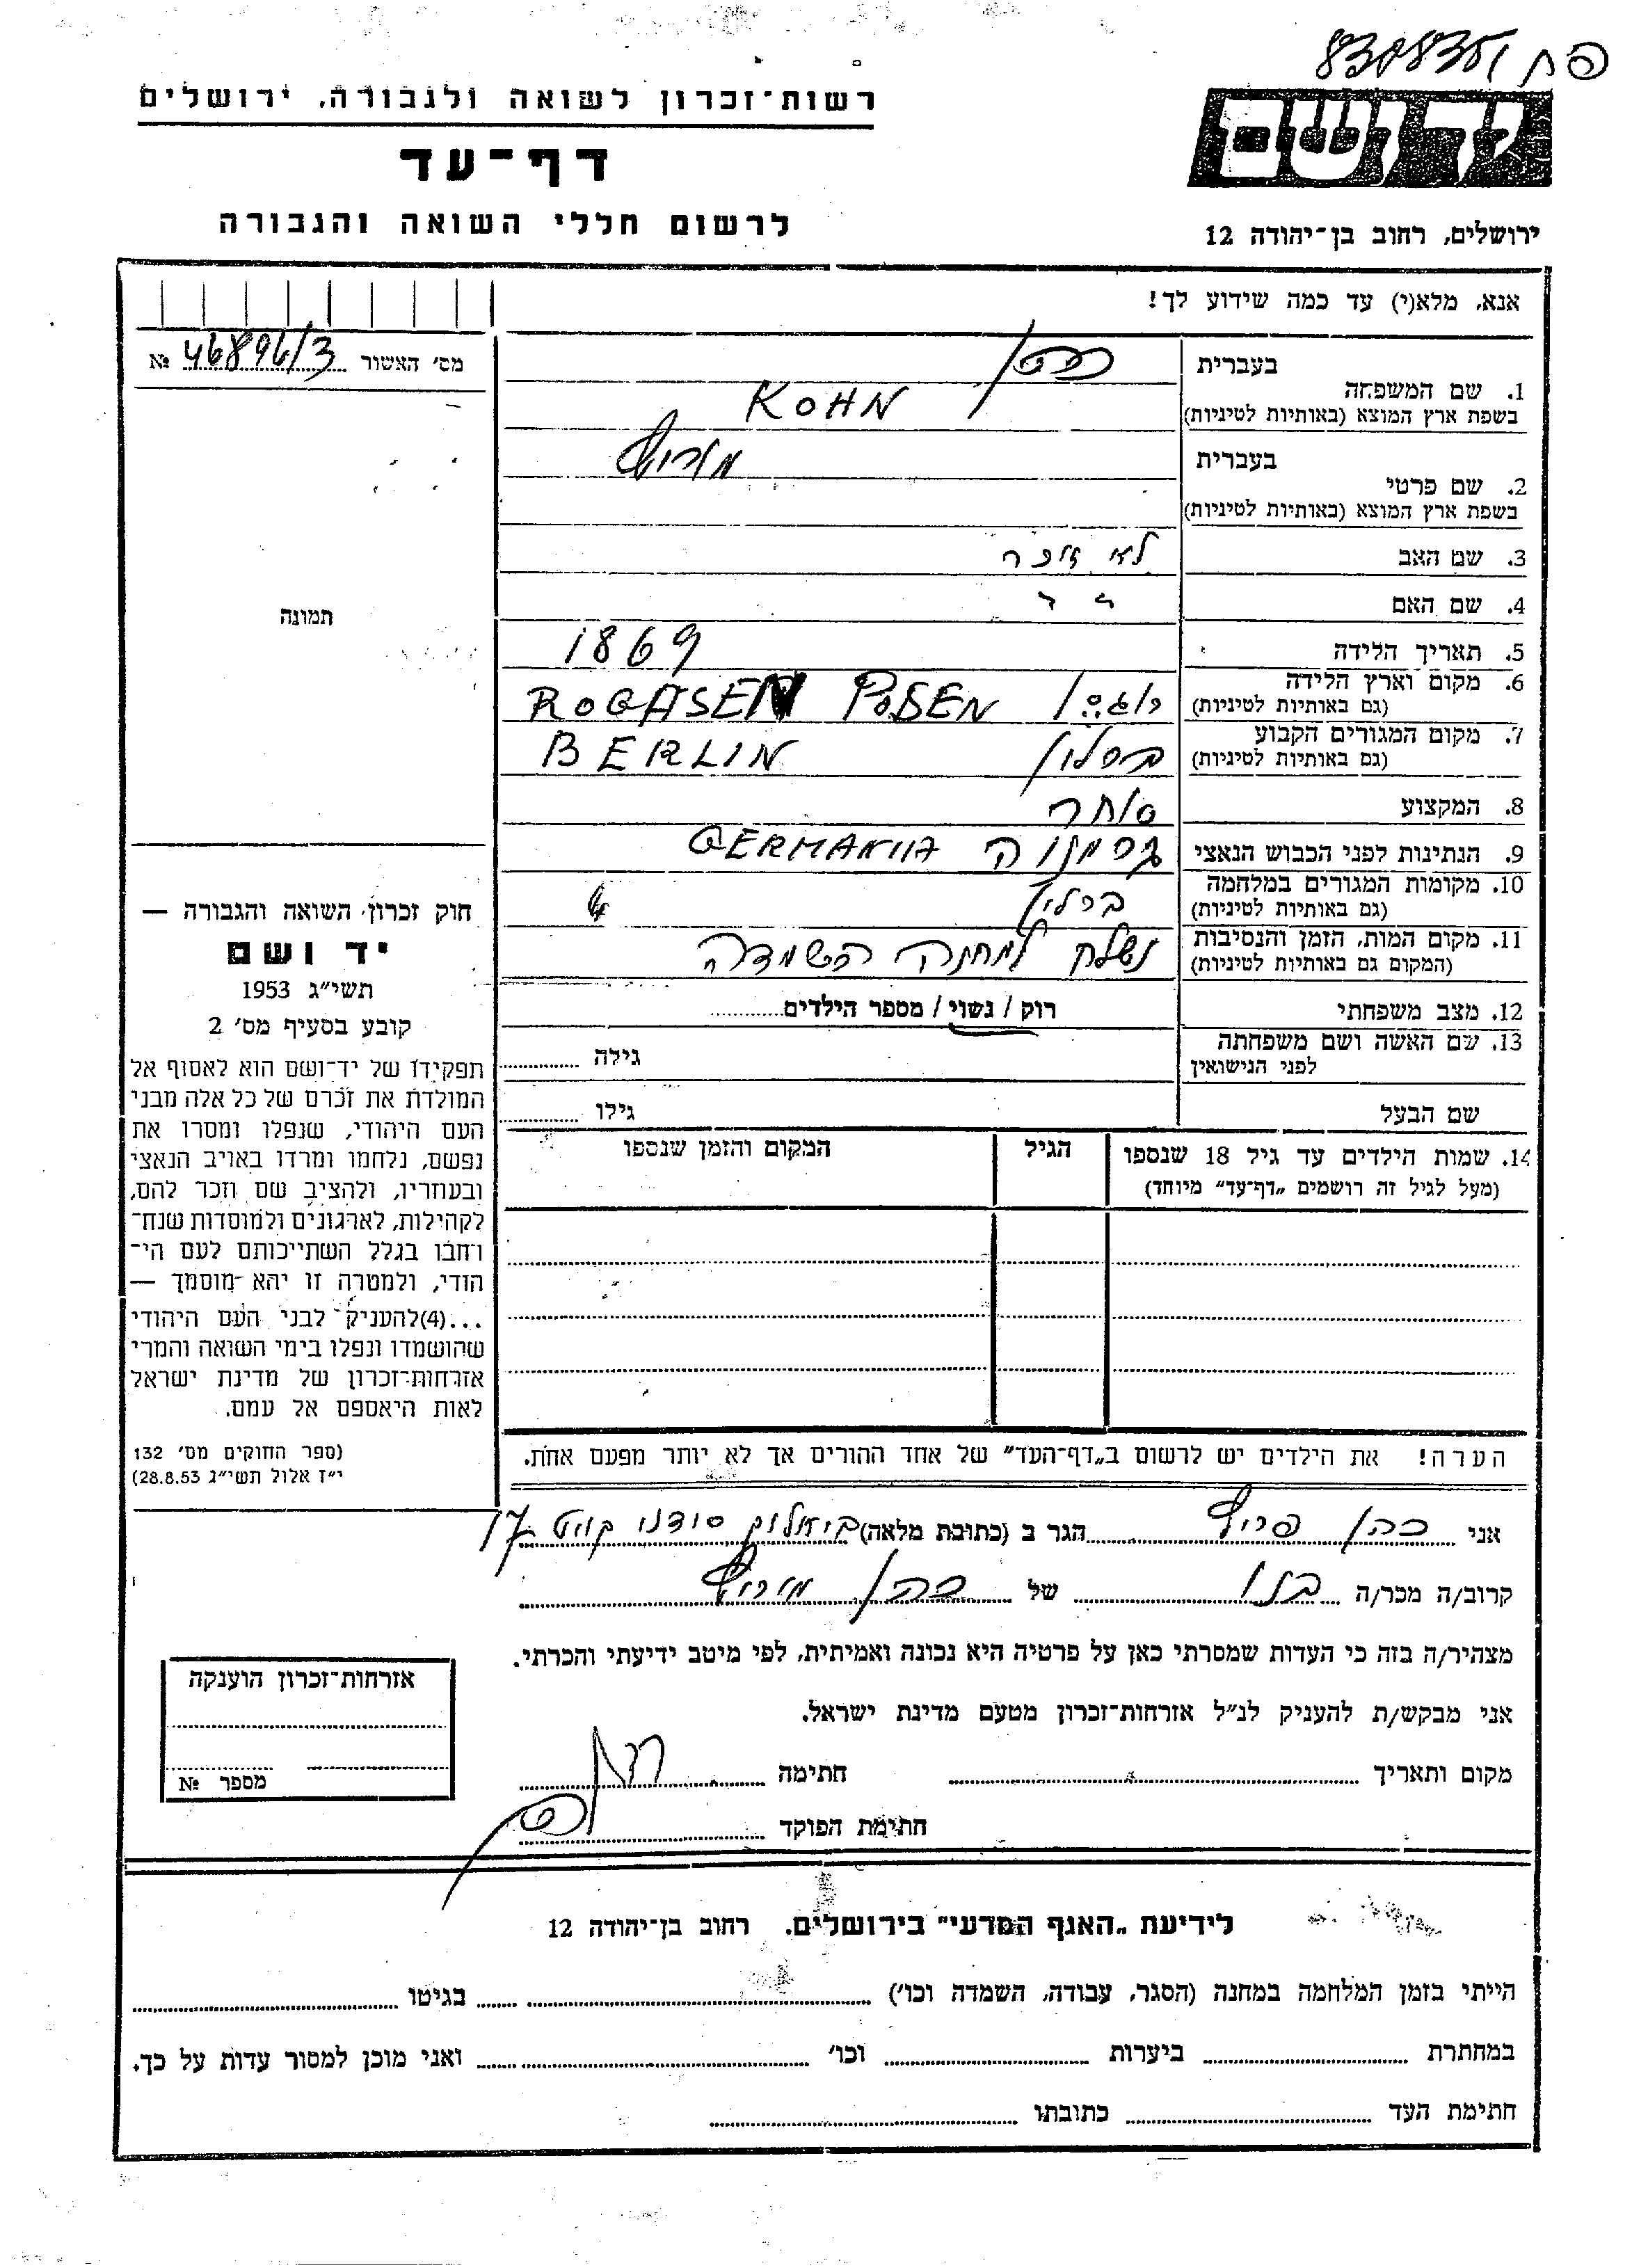 8308351
רשות־זכרון לשואה ולגבורה, ירושלים
דף־עד
לרשום חללי השואה והגבורה
יד ושם
ירושלים, רחוב בן־יהודה 12
אנא, מלא(י) עד כמה שידוע לך!
מס׳ האשור 46896/3 №
תמונה
חוק זכרון השואה והגבורה —
יד ושם
תשי״ג 1953
קובע בסעיף מס׳ 2
תפקידו של יד־ושם הוא לאסוף אל
המולדת את זכרם של כל אלה מבני
העם היהודי, שנפלו ומסרו את
נפשם, נלחמו ומרדו באויב הנאצי
ובעוזריו, ולהציב שם וזכר להם,
לקהילות, לארגונים ולמוסדות שנח־
רחבו בגלל השתייכותם לעם הי־
הודי, ולמטרה זו יהא מוסמך —
...(4)להעניק לבני העם היהודי
שהושמדו ונפלו בימי השואה והמרי
אזרחות־זכרון של מדינת ישראל
לאות היאספם אל עמם.
(ספר החוקים מס׳ 132
י״ז אלול תשי״ג 28.8.53)
בעברית כהן
1. שם המשפחה
בשפת ארץ המוצא (באותיות לטיניות) KOHN
בעברית מוריץ
2. שם פרטי
בשפת ארץ המוצא (באותיות לטיניות)
3. שם האב לא זוכר
4. שם האם
5. תאריך הלידה 1869
6. מקום וארץ הלידה
(גם באותיות לטיניות) ROGASEN POSEN
7. מקום המגורים הקבוע
(גם באותיות לטיניות) ברלין BERLIN
8. המקצוע סוחר
9. הנתינות לפני הכבוש הנאצי גרמניה GERMANIA
10. מקומות המגורים במלחמה
(גם באותיות לטיניות) ברלין
11. מקום המות, הזמן והנסיבות
(המקום גם באותיות לטיניות) נשלח למחנה השמדה
12. מצב משפחתי רוק / נשוי / מספר הילדים
13. שם האשה ושם משפחתה
לפני הנישואין גילה
שם הבעל גילו
14. שמות הילדים עד גיל 18 שנספו הגיל המקום והזמן שנספו
(מעל לגיל זה רושמים „דף־עד״ מיוחד)
הערה! את הילדים יש לרשום ב„דף־העד״ של אחד ההורים אך לא יותר מפעם אחת.
אני כהן פריץ הגר ב (כתובת מלאה)
קרוב/ה מכר/ה בנו של כהן מוריץ
מצהיר/ה בזה כי העדות שמסרתי כאן על פרטיה היא נכונה ואמיתית, לפי מיטב ידיעתי והכרתי.
אני מבקש/ת להעניק לנ״ל אזרחות־זכרון מטעם מדינת ישראל.
מקום ותאריך חתימה
חתימת הפוקד
אזרחות־זכרון הוענקה
מספר №
לידיעת „האגף המדעי״ בירושלים. רחוב בן־יהודה 12
הייתי בזמן המלחמה במחנה (הסגר, עבודה, השמדה וכו׳) בגיטו
במחתרת ביערות וכו׳ ואני מוכן למסור עדות על כך.
חתימת העד כתובתו